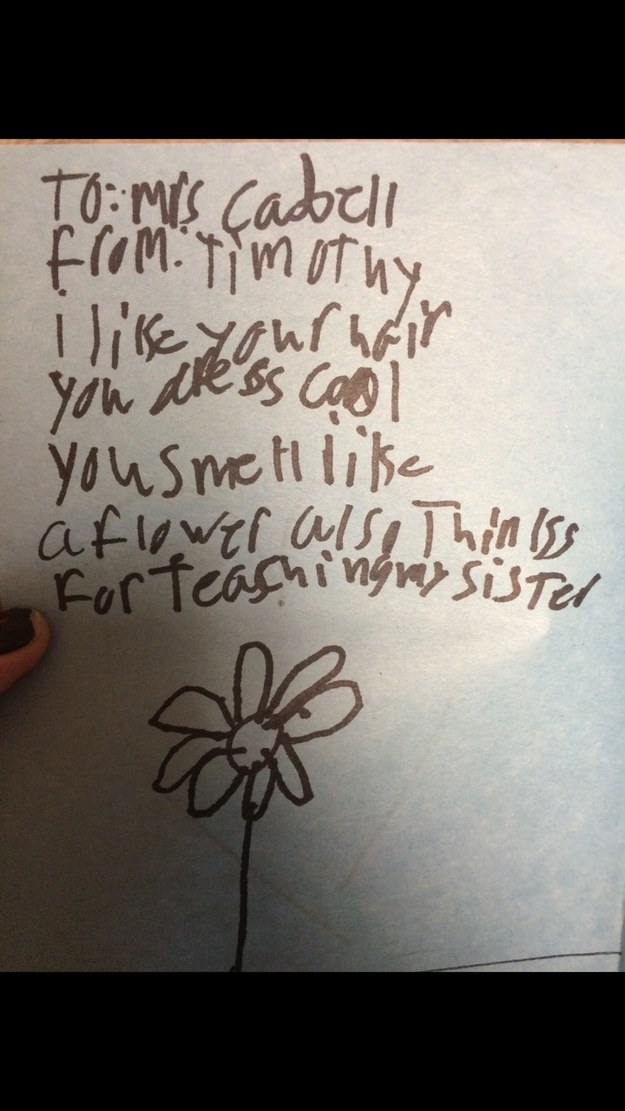 To: mrs Cadbell
From: Timothy
i like your hair
you dress Cool
you smell like
a flower also Thinks
For Teaching my sister